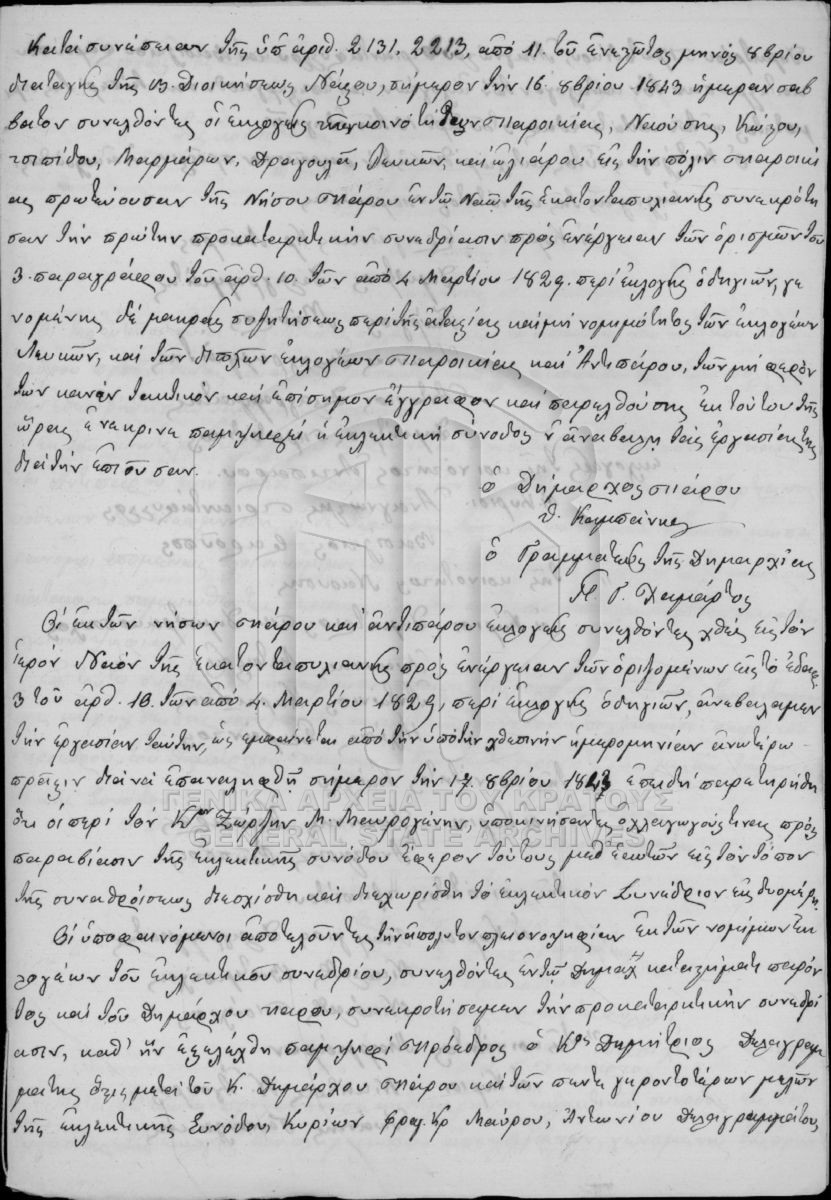 Κατά συνέπειαν τῆς ὑπ' ἀριθ. 2131. 2213, ἀπό 11. τοῦ ἐνεστῶτος μηνός 8βρίου
διαταγῆς τῆς Β. Διοικήσεως Νάξου, σήμερον τήν 16 8βρίου 1843 ἡμέραν σαβ
βατον συνελθόντες οἱ ἐκλογεῖς τῶν κοινοτήτων Παροικίας, Ναούσης, Κώστου,
τσιπίδου, Μαρμάρων, Δραγουλᾶ, Λευκῶν, καί ὠλιάρου εἰς τήν πόλιν Παροικί
ας πρωτεύουσαν τῆς Νήσου Πάρου ἐν τῷ Ναῷ τῆς Ἑκατονταπυλιανῆς συνεκρότη
σαν τήν πρώτην προκαταρκτικήν συνεδρίασιν πρός ἐνέργειαν τῶν ὁρισμῶν τοῦ
3. παραγράφου τοῦ ἀρθ. 10. τῶν ἀπό 4 Μαρτίου 1829. περί ἐκλογῆς ὁδηγιῶν, γε
νομένης δέ μακρᾶς συζητήσεως περί τῆς ἀταξίας καί μή νομιμότητος τῶν ἐκλογέων
Λευκῶν, καί τῶν διπλῶν ἐκλογέων Παροικίας καί Ἀντιπάρου, τῶν μή φερόν
των κανέν τακτικόν καί ἐπίσημον ἔγγραφον καί παρελθούσης ἐκ τούτου τῆς
ὥρας ἐνέκρινε παμψηφεί ἡ ἐκλεκτική σύνοδος ν' ἀναβάλῃ τάς ἐργασίας της
διά τήν ἐπιοῦσαν.
ὁ Δήμαρχος Πάρου
Θ. Καμπάνης
ὁ Γραμματεύς τῆς Δημαρχίας
Π Γ. Χαμάρτος
Οἱ ἐκ τῶν νήσων Πάρου καί ἀντιπάρου ἐκλογεῖς συνελθόντες χθές εἰς τόν
ἱερόν Ναόν τῆς Ἑκατονταπυλιανῆς πρός ἐνέργειαν τῶν ὁριζομένων εἰς τό ἐδάφ.
3 τοῦ ἀρθ. 10. τῶν ἀπό 4. Μαρτίου 1829, περί ἐκλογῆς ὁδηγιῶν, ἀνεβάλαμεν
τήν ἐργασίαν ταύτην, ὡς ἐμφαίνεται ἀπό τήν ὑπό τήν χθεσινήν ἡμερομηνίαν ἀνωτέρω
πρᾶξιν διά νά ἐπαναληφθῇ σήμερον τήν 17. 8βρίου 1843 ἐπειδή παρετηρήθη
ὅτι οἱ περί τόν Κον Ζώρζην Μ. Μαυρογένην, ὑποκινήσαντες ὀχλαγωγούς τινας πρός
παραβίασιν τῆς ἐκλεκτικῆς συνόδου ἔφερον τούτους μεθ' ἑαυτῶν εἰς τόν τόπον
τῆς συναθροίσεως διεσχίσθη καί διεχωρίσθη τό ἐκλεκτικόν Συνέδριον εἰς δύο μέρη.
Οἱ ὑποφαινόμενοι ἀποτελοῦντες τήν ἀπόλυτον πλειονοψηφίαν ἐκ τῶν νομίμων ἐκ
λογέων τοῦ ἐκλεκτικοῦ συνεδρίου, συνελθόντες ἐν τῷ Δημαρχ καταστήματι παρόν
τος καί τοῦ Δημάρχου Πάρου, συνεκροτήσαμεν τήν προκαταρκτικήν συνεδρί
ασιν, καθ' ἥν ἐξελέχθη παμψηφεί Πρόεδρος ὁ Κος Δημήτριος Δελαγραμ
μάτης μεταξύ τοῦ Κ. Δημάρχου Πάρου καί τῶν πέντε γεροντοτέρων μελῶν
τῆς ἐκλεκτικῆς Συνόδου, Κυρίων Φραγ. Κρ Μαύρου, Ἀντωνίου Δελαγραμμάτους
ΓΕΝΙΚΑ ΑΡΧΕΙΑ ΤΟΥ ΚΡΑΤΟΥΣ
GENERAL STATE ARCHIVES